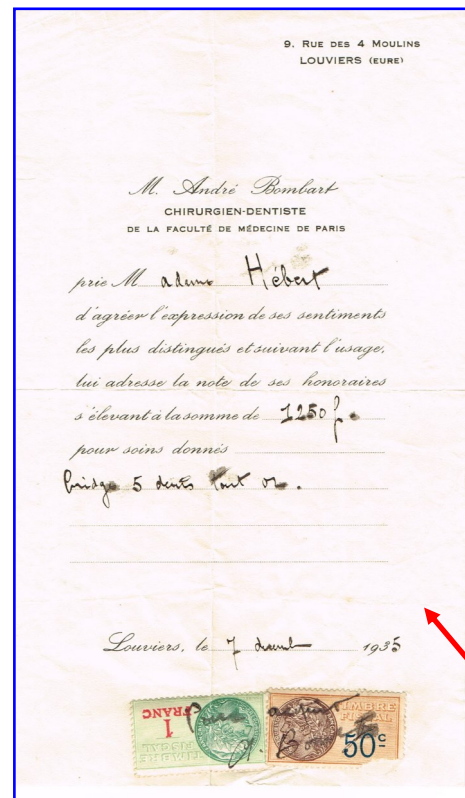 9. RUE DES 4 MOULINS
LOUVIERS (EURE)
M. André Bombart
CHIRURGIEN-DENTISTE
DE LA FACULTÉ DE MÉDECINE DE PARIS
prie Madame Hébert
d'agréer l'expression de ses sentiments
les plus distingués et suivant l'usage,
lui adresse la note de ses honoraires
s'élevant à la somme de 1250 f
pour soins donnés
bridge 5 dents tout or.
Louviers, le 7 1935
Pour acquit
1 FRANC
TIMBRE FISCAL
TIMBRE FISCAL
50c